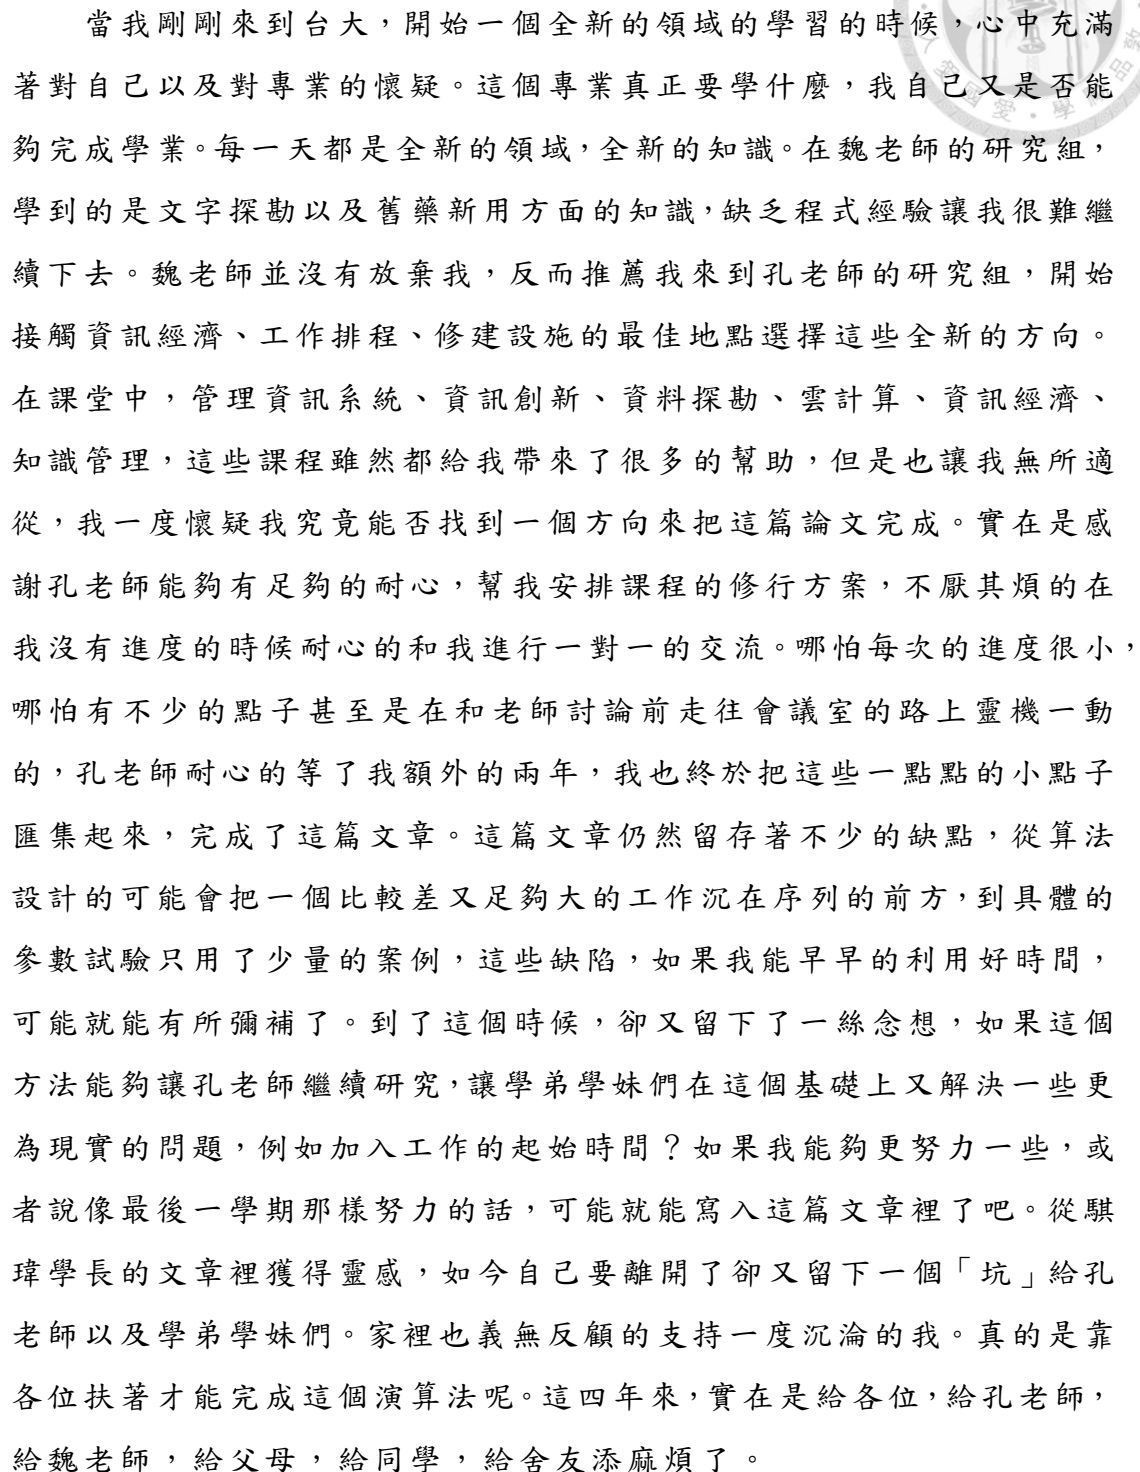 當我剛剛來到台大，開始一個全新的領域的學習的時候，心中充滿
著對自己以及對專業的懷疑。這個專業真正要學什麼，我自己又是否能
夠完成學業。每一天都是全新的領域，全新的知識。在魏老師的研究組，
學到的是文字探勘以及舊藥新用方面的知識，缺乏程式經驗讓我很難繼
續下去。魏老師並沒有放棄我，反而推薦我來到孔老師的研究組，開始
接觸資訊經濟、工作排程、修建設施的最佳地點選擇這些全新的方向。
在課堂中，管理資訊系統、資訊創新、資料探勘、雲計算、資訊經濟、
知識管理，這些課程雖然都給我帶來了很多的幫助，但是也讓我無所適
從，我一度懷疑我究竟能否找到一個方向來把這篇論文完成。實在是感
謝孔老師能夠有足夠的耐心，幫我安排課程的修行方案，不厭其煩的在
我沒有進度的時候耐心的和我進行一對一的交流。哪怕每次的進度很小，
哪怕有不少的點子甚至是在和老師討論前走往會議室的路上靈機一動
的，孔老師耐心的等了我額外的兩年，我也終於把這些一點點的小點子
匯集起來，完成了這篇文章。這篇文章仍然留存著不少的缺點，從算法
設計的可能會把一個比較差又足夠大的工作沉在序列的前方，到具體的
參數試驗只用了少量的案例，這些缺陷，如果我能早早的利用好時間，
可能就能有所彌補了。到了這個時候，卻又留下了一絲念想，如果這個
方法能夠讓孔老師繼續研究，讓學弟學妹們在這個基礎上又解決一些更
為現實的問題，例如加入工作的起始時間？如果我能夠更努力一些，或
者說像最後一學期那樣努力的話，可能就能寫入這篇文章裡了吧。從騏
瑋學長的文章裡獲得靈感，如今自己要離開了卻又留下一個「坑」給孔
老師以及學弟學妹們。家裡也義無反顧的支持一度沉淪的我。真的是靠
各位扶著才能完成這個演算法呢。這四年來，實在是給各位，給孔老師，
給魏老師，給父母，給同學，給舍友添麻煩了。